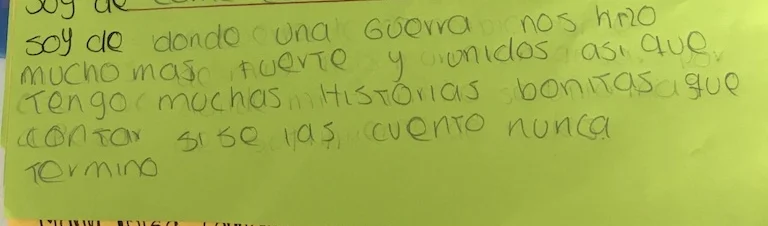 soy de
soy de donde una Guerra nos hizo
mucho mas fuerte y unidos asi que
Tengo muchas HisTorias bonitas que
conTar si se las cuento nunca
Termino